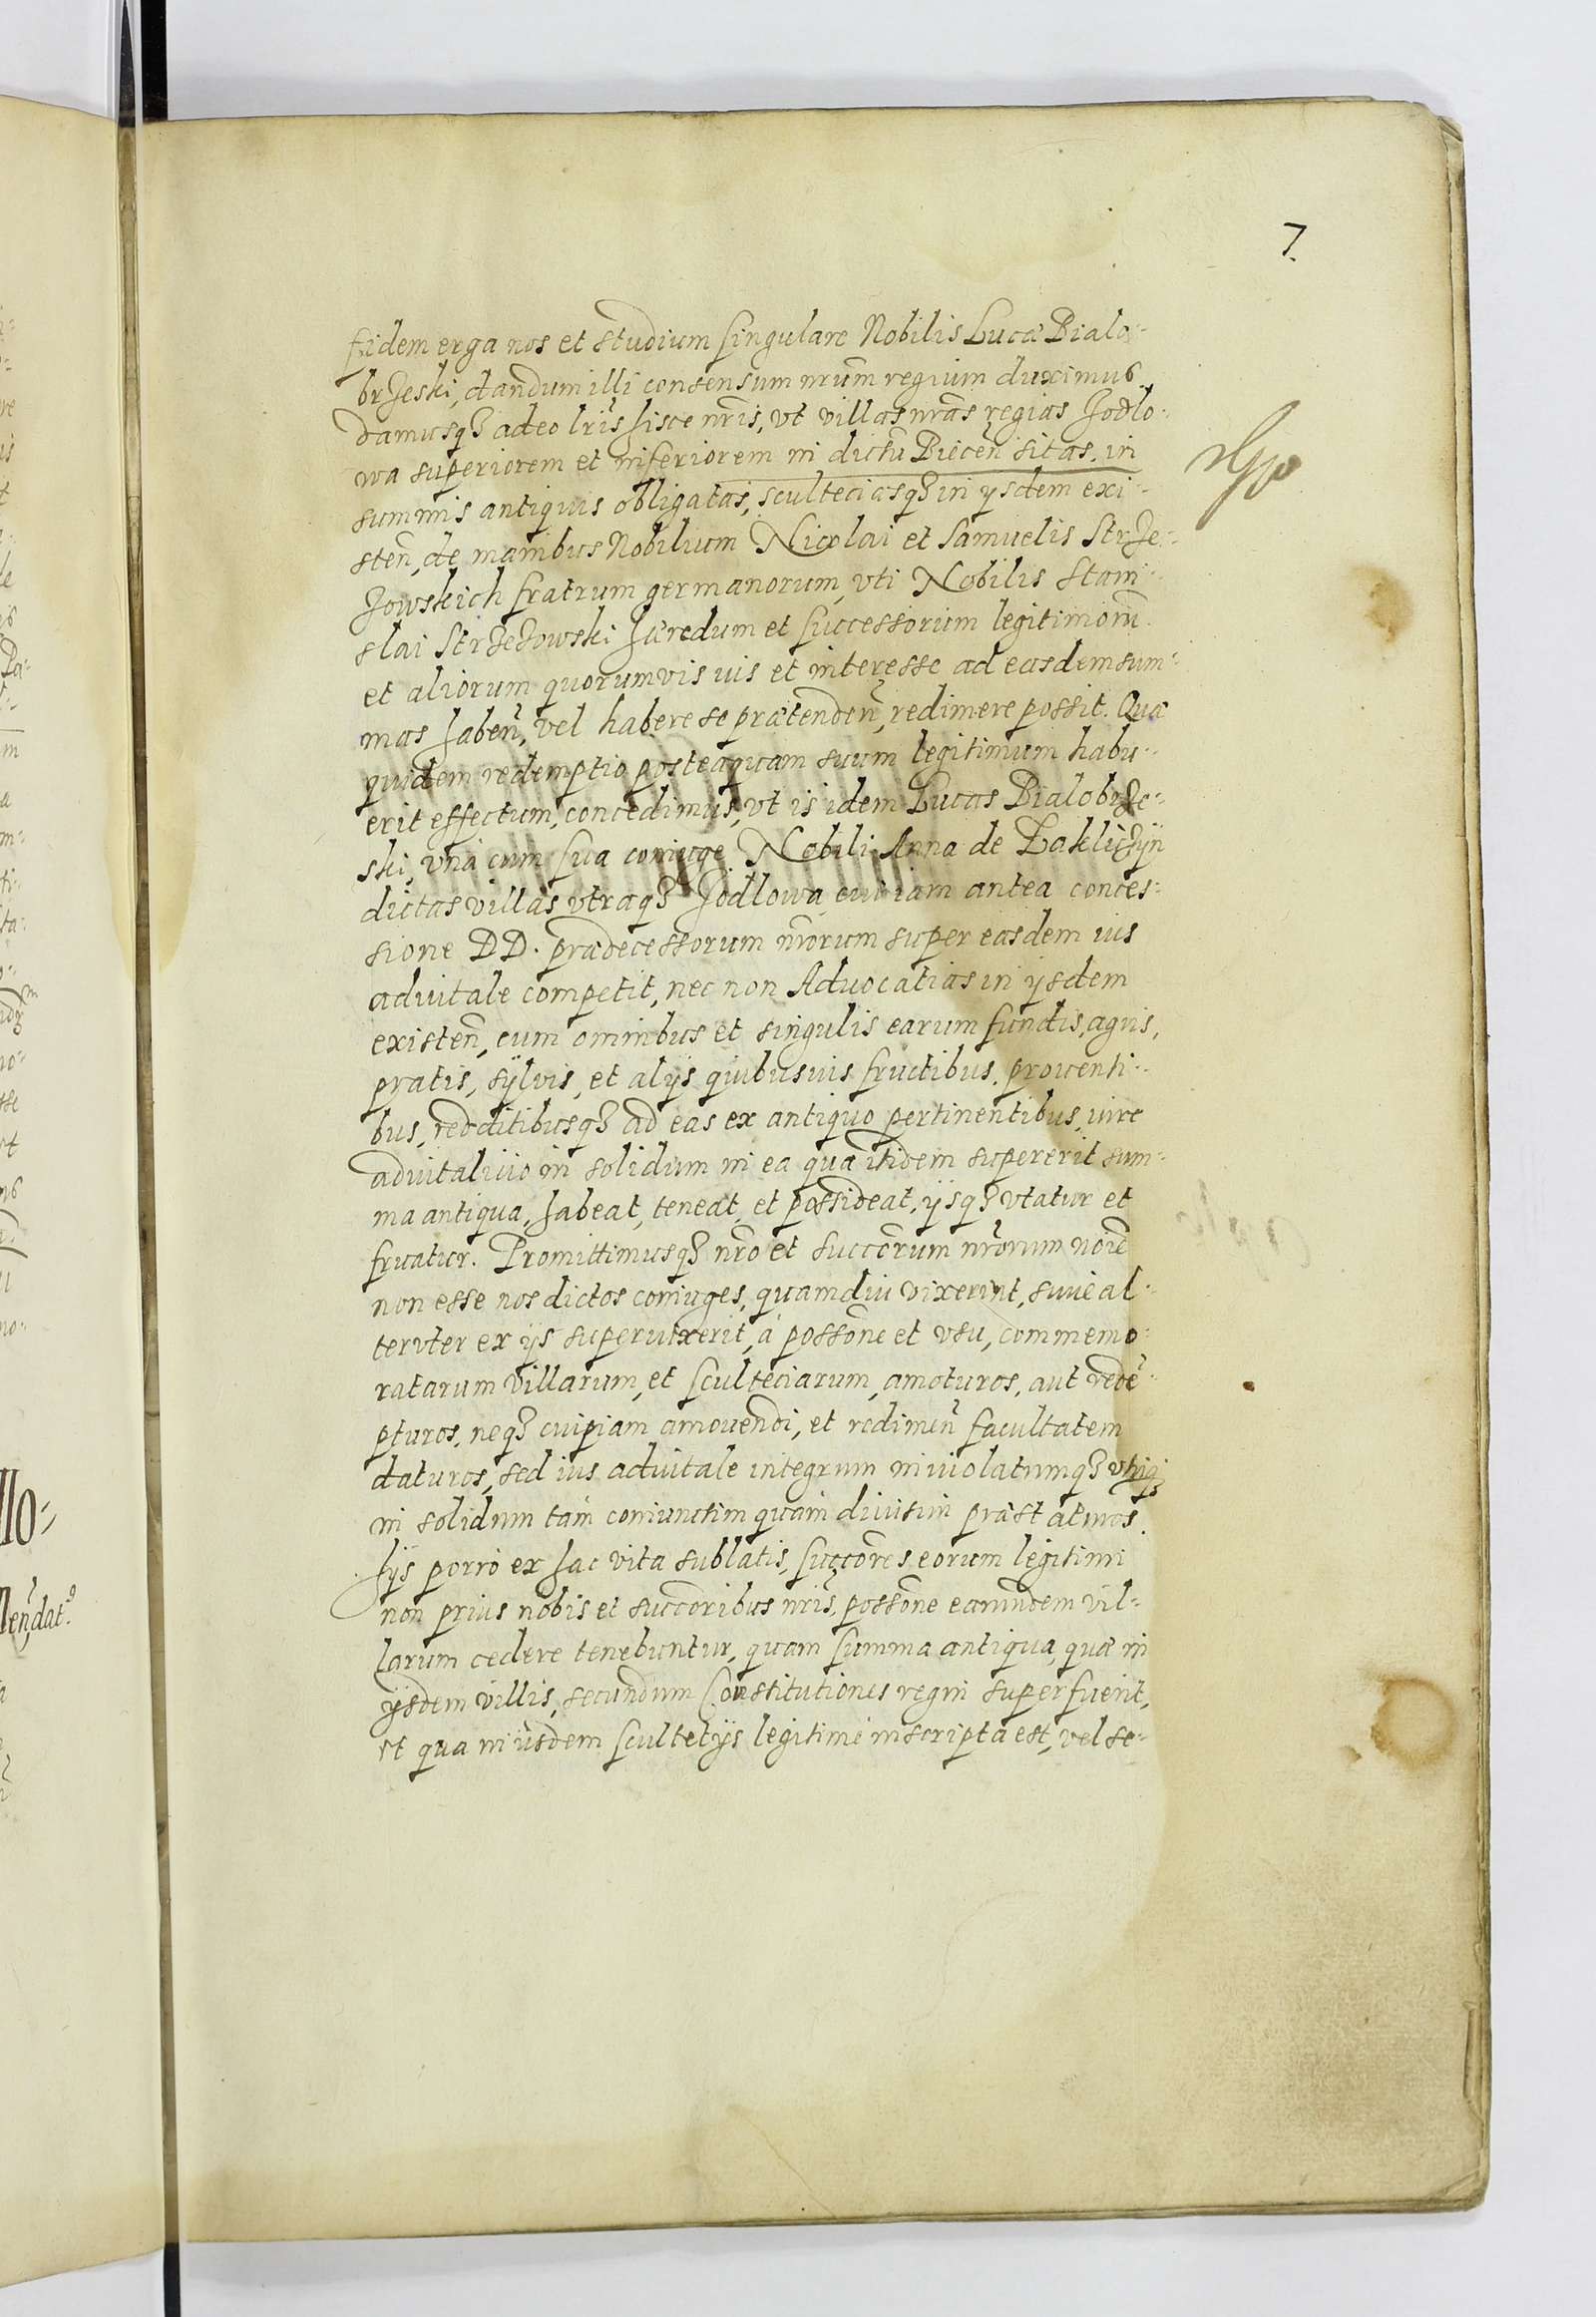 7.
fidem erga nos et studium singulare Nobilis Lucæ Bialo-
brzeski, dandum illi consensum nrūm regium duximus.
damusq₃ adeo lrīs hisce nrīs, vt villas nrās regias Jodlo-
wa superiorem et inferiorem in dictū Biecēn sitas, in
summis antiquis obligatas, sculteciasq₃ in ysdem exi-
stēn, de manibus Nobilium Nicolai et Samuelis Strze-
zowskich fratrum germanorum, vti Nobilis Stani-
slai Strzezowski hæredum et successorum legitimorū
et aliorum quorumvis ius et interesse ad easdem sum-
mas habēn, vel habere se prætendēn, redimere possit. Quæ
quidem redemptio posteaquam suum legitimum habu-
erit effectum, concedimus, vt is idem Lucas Bialobrze-
ski, vnà cum sua coniuge Nobili Anna de Zakliczÿn
dictas villas vtraq₃ Jodlowa, cui iam antea conces-
sione DD. prædecessorum nrōrum super easdem ius
aduitale competit, nec non Aduocatias in ysdem
existēn, cum omnibus et singulis earum fundis, agris,
pratis, sÿlvis, et alÿs quibusuis fructibus, prouenti-
bus, redditibusq₃ ad eas ex antiquo pertinentibus, iure
aduitalitio in solidum in ea quæ itidem supererit sum-
ma antiqua, habeat, teneat, et possideat, ÿsq₃ vtatur et
fruatur. Promittimusq₃ nrō et succōrum nrōrum noiē
non esse nos dictos coniuges, quamdiu vixerint, siue al-
teruter ex ÿs superuixerit, à possōne et vsu, commemo-
ratarum villarum, et sculteciarum, amoturos, aut redē-
pturos, neq₃ cuipiam amouendi, et redimēn facultatem
daturos, sed ius aduitale integrum inuiolatumq₃ vtriq₃
in solidum tam coniunctim quàm diuisim præstaturos.
hÿs porrò ex hac vita sublatis, succōres eorum legitimi
non prius nobis et succōribus nrīs, possōne earundem vil-
larum cedere tenebuntur, quam summa antiqua, quæ in
ÿsdem villis, secundum Constitutiones regni superfuerit,
et quæ in ÿsdem scultetÿs legitimè inscripta est, vel se-